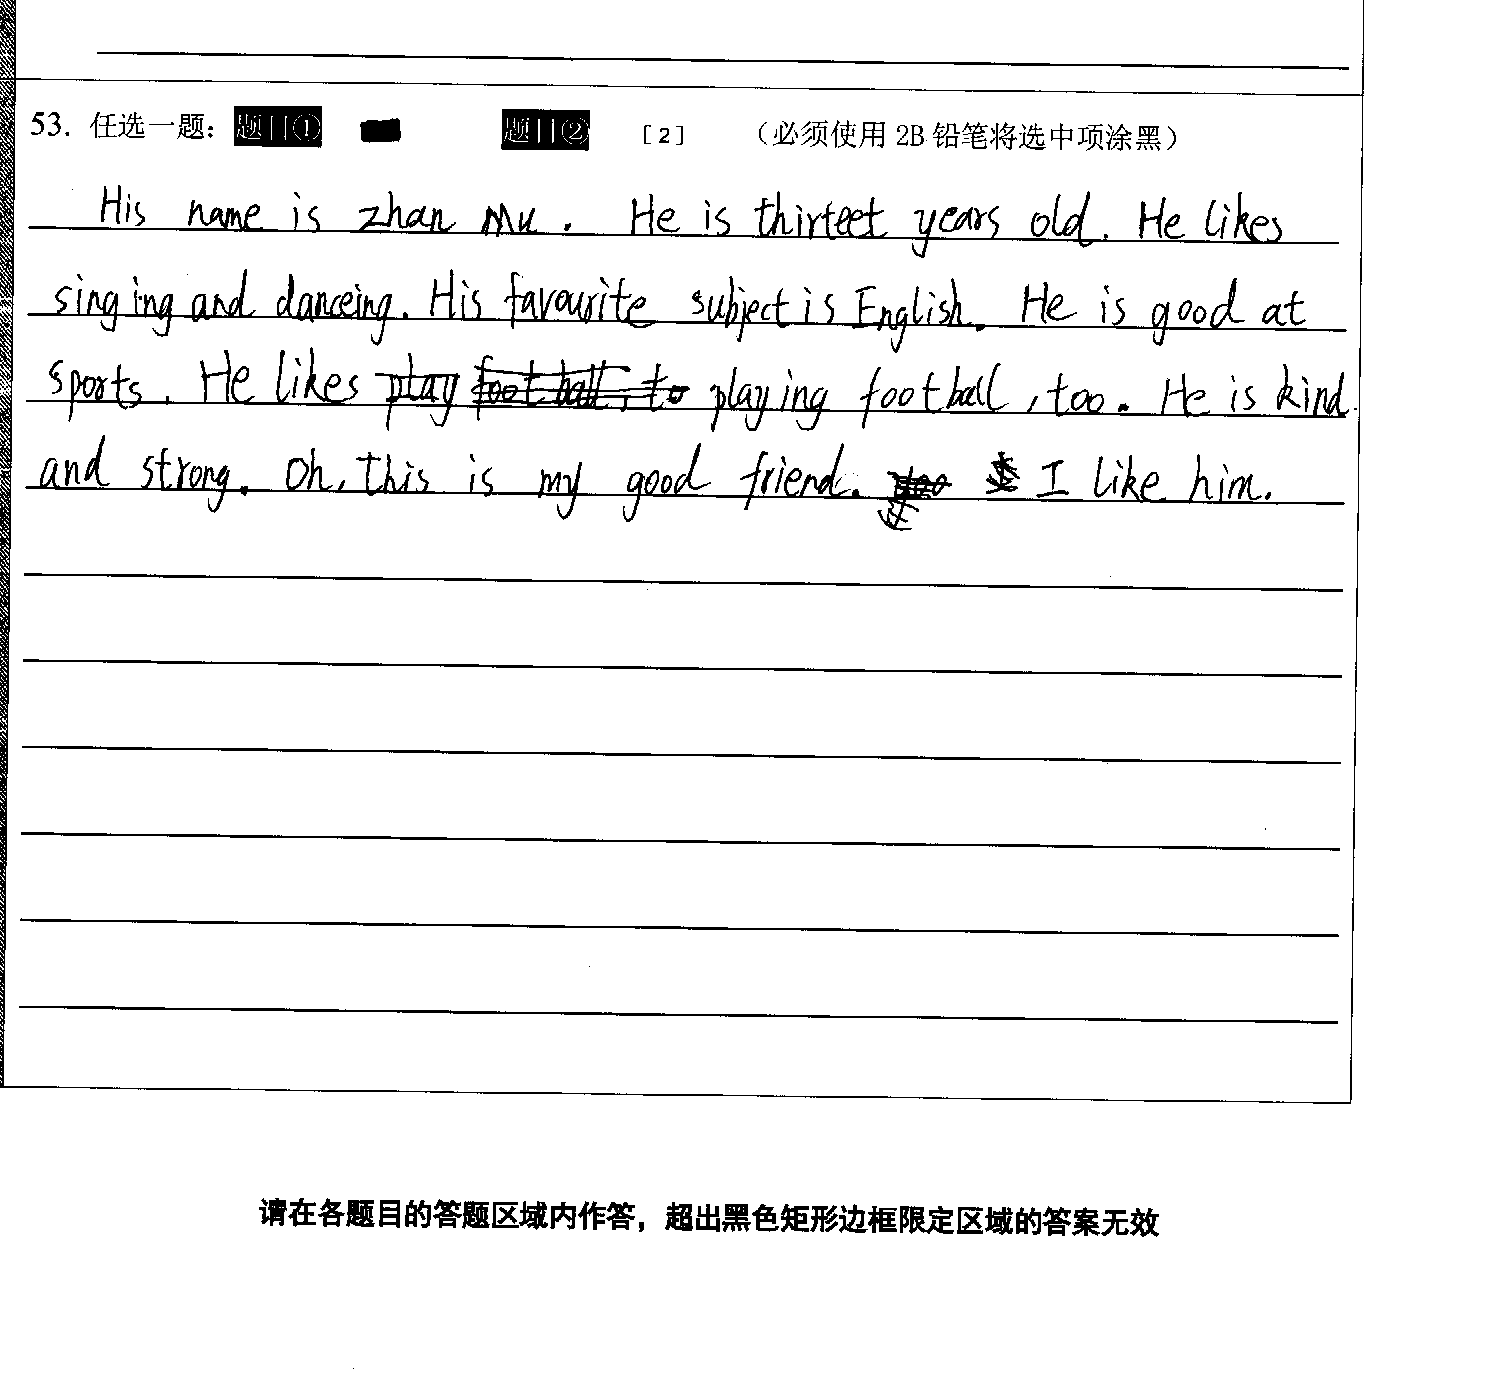 53. 任选一题： 题目① 题目② [2] （必须使用 2B 铅笔将选中项涂黑）
His name is zhan mu. He is thirteet years old. He likes
singing and danceing. His favourite subject is English. He is good at
sports. He likes play football, to playing football, too. He is kind
and strong. Oh, this is my good friend. I like him.
请在各题目的答题区域内作答，超出黑色矩形边框限定区域的答案无效